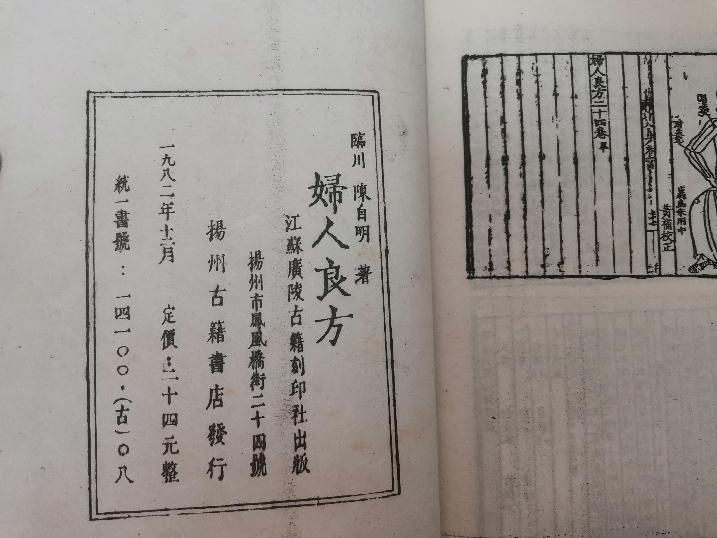 臨川 陳自明 著
婦人良方
江蘇廣陵古籍刻印社出版
揚州市鳳凰橋街二十四號
揚州古籍書店發行
一九八二年十二月 定價：二十四元整
統一書號：一四一〇〇·(古)〇八
婦人良方二十四卷
校正